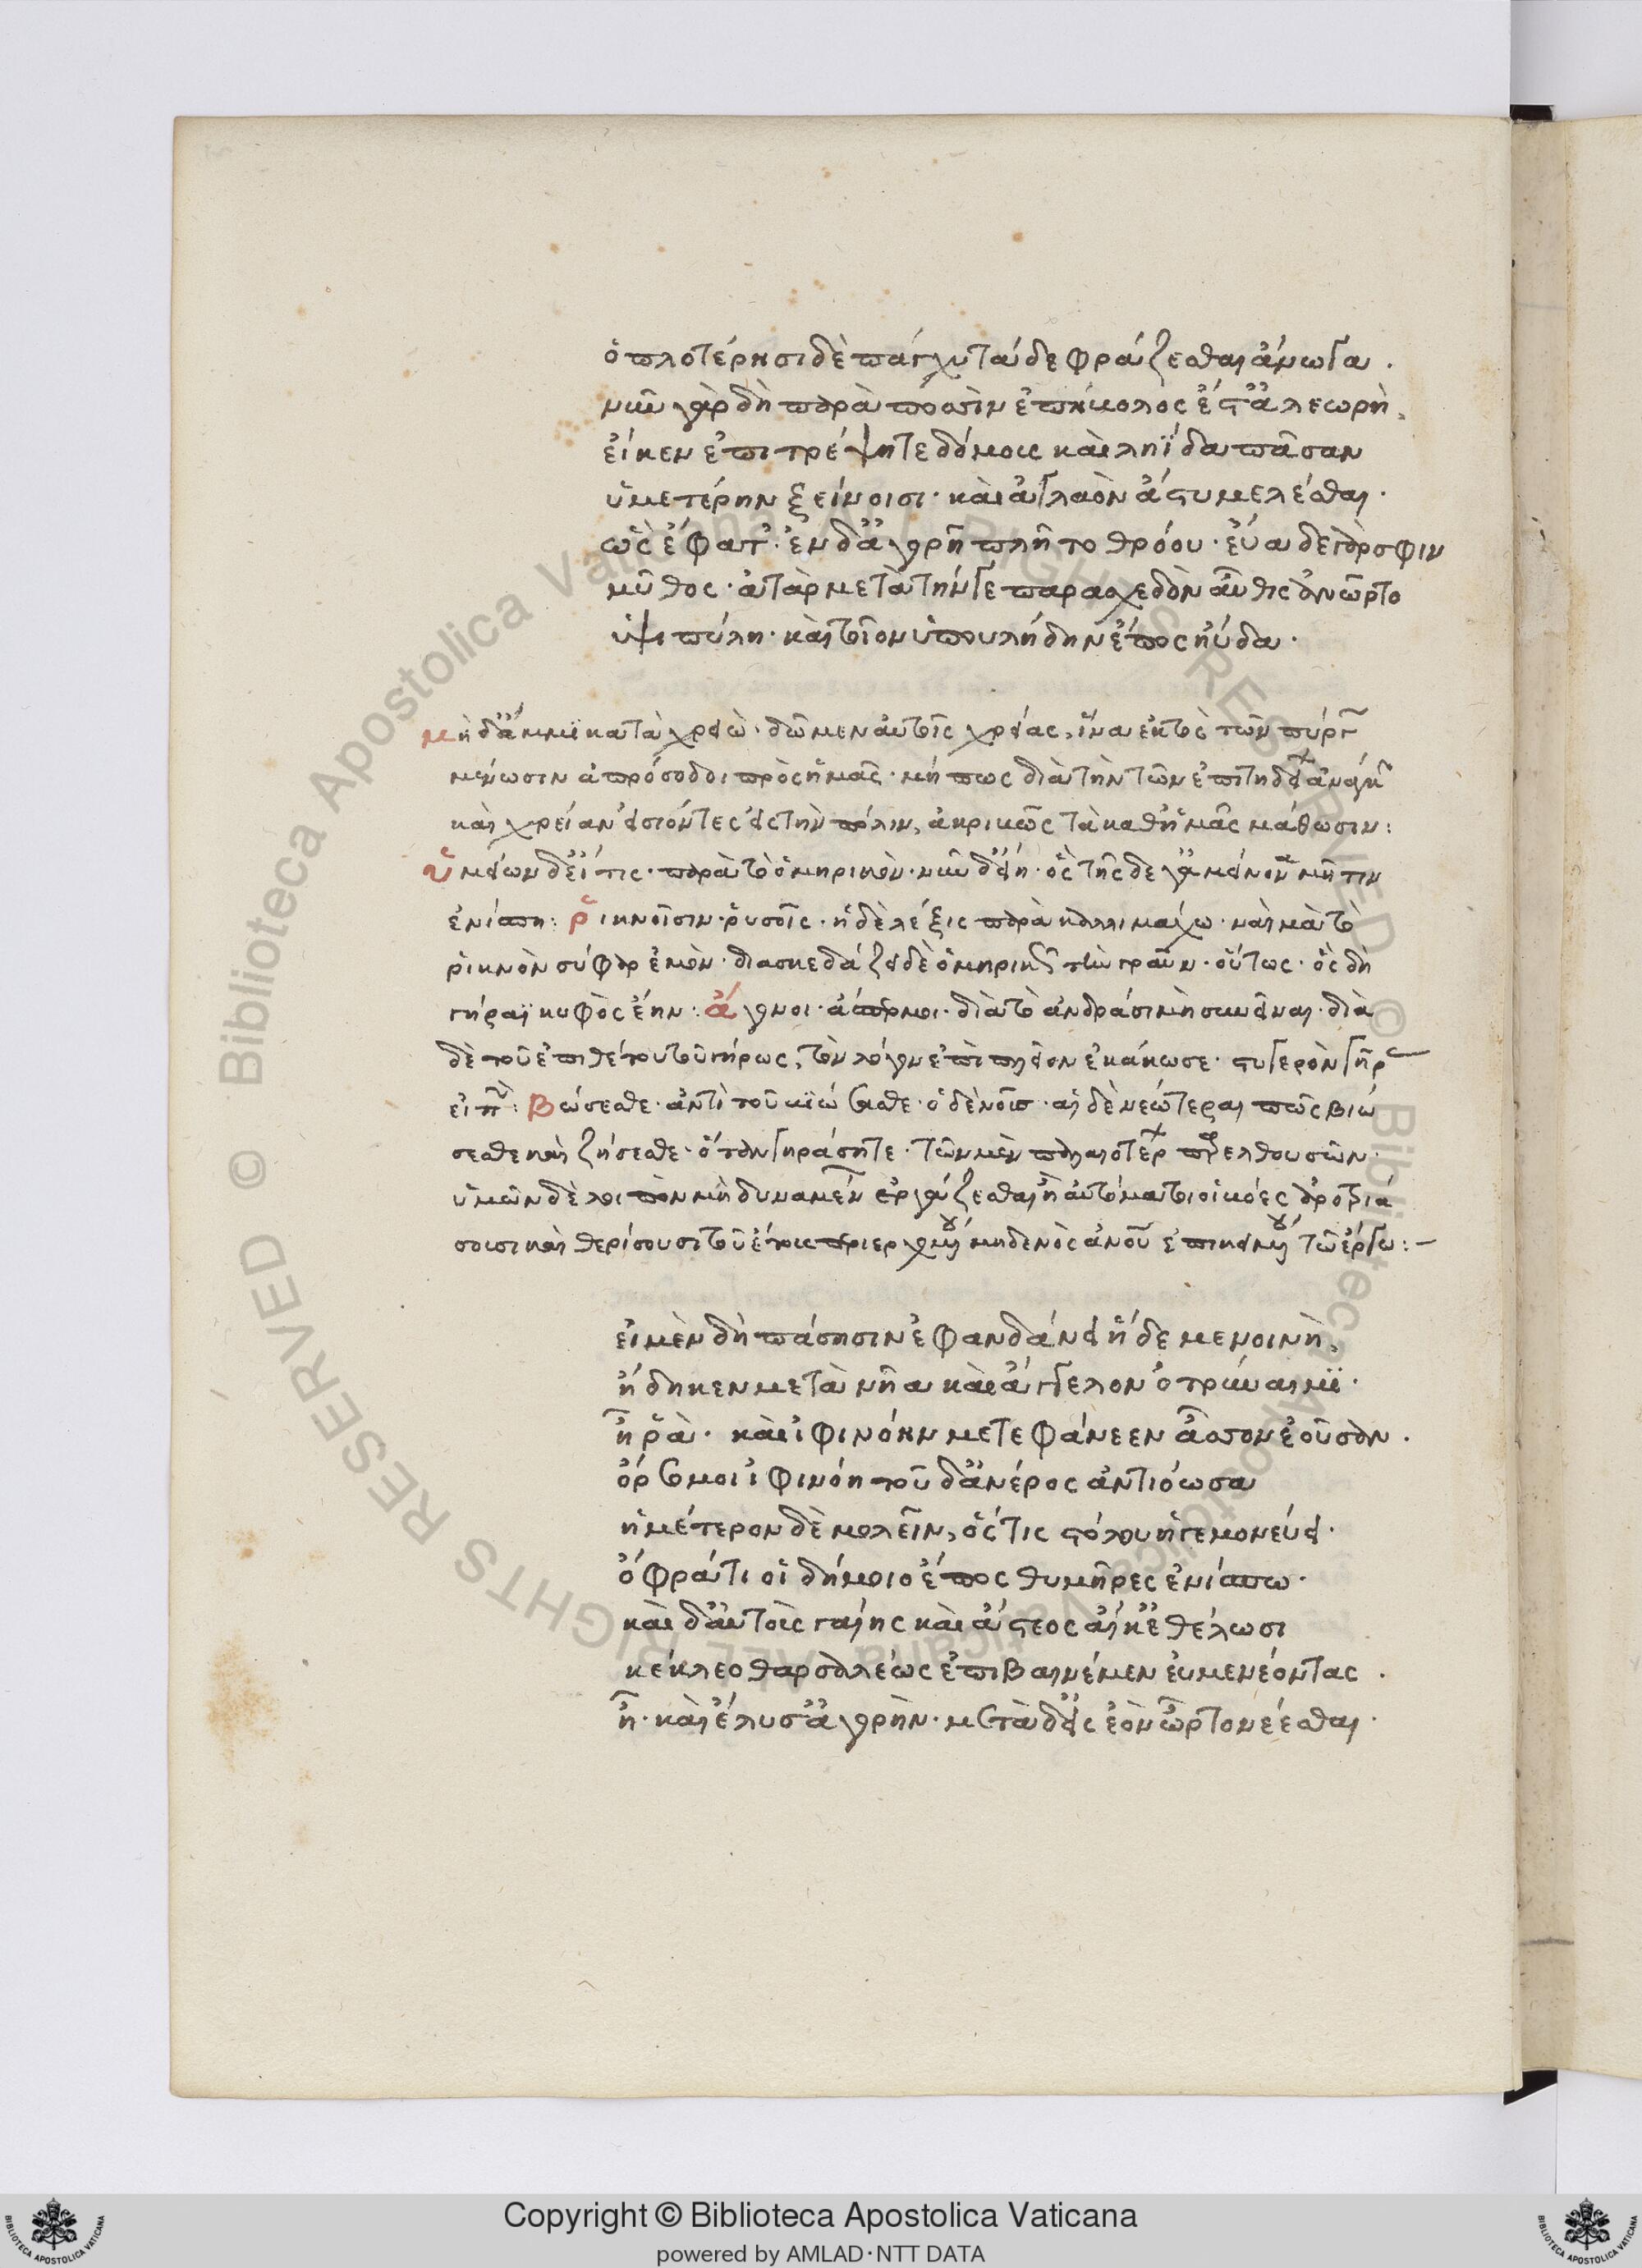 ὁπλοτέρῃσι δὲ πάγχυ τάδε φράζεσθαι ἄνωγα.
νῦν γὰρ δὴ παρὰ ποσσὶν ἐπήβολός ἐστ' ἀλεωρὴ,
εἴ κεν ἐπιτρέψητε δόμους καὶ ληΐδα πᾶσαν
ὑμετέρην ξείνοισι· καὶ ἀγλαὸν ἄστυ μέλεσθαι.
ὣς ἔφατ'· ἐν δ' ἀγορὴ πλῆτο θρόου· εὔαδε γάρ σφιν
μῦθος· ἀτὰρ μετὰ τήν γε παρασχεδὸν αὖθις ἀνῶρτο
ὑψιπύλη· καὶ τοῖον ὑποβλήδην ἔπος ηὔδα·
μὴ δ' ἄμμϊ κατὰ χρειὼ· δῶμεν αὐτοῖς χρείας, ἵνα ἐκτὸς τῶν πύργ
μένωσιν ἀπρόσοδοι πρὸς ἡμᾶς· μή πως διὰ τὴν τῶν ἐπιτηδεί ἀνάγκ
καὶ χρείαν εἰσιόντες εἰς τὴν πόλιν, ἀκριβῶς τὰ καθ' ἡμᾶς μάθωσιν:
ὑμείων δ' εἴ τις· παρὰ τὸ ὁμηρικὸν· νῦν δ' εἴη· ὃς τῆσδε γ' ἀμείνονα μῆτιν
ἐνίσποι: ῥικνοῖσιν· ῥυσοῖς· ἡ δὲ λέξις παρὰ καλλιμάχω· ναὶ μὰ τὸ
ῥικνὸν σύφαρ ἐμὸν· διασκεδάζει δὲ ὁμηρικῶς τὴν γραῦν· οὕτως· ὃς δὴ
γήραϊ κυφὸς ἔην: ἄγονοι· ἄποροι· διὰ τὸ ἀνδράσι μὴ συνεῖναι· διὰ
δὲ τοῦ ἐπιθέτου τοῦ γήρως, τὸν λόγον ἐπὶ πλεῖον ἐκάκωσε· στυγερὸν γῆρας
εἰπ: βώσεσθε· ἀντὶ τοῦ βιώσεσθε· ὁ δὲ νοῦς· αἱ δὲ νεώτεραι πῶς βιώ
σεσθε καὶ ζήσεσθε· ὅταν γηράσητε· τῶν μὲν παλαιοτέρ προελθουσῶν·
ὑμῶν δὲ λοιπὸν μὴ δυναμέν ἐργάζεσθαι ἢ αὐτόματοι οἱ βόες ἀροτριά
σουσι καὶ θερίσουσι τοῦ ἔτους περιερχομένου μηδενὸς ἀνου ἐπικειμένου τῶ ἔργω:-
εἰ μὲν δὴ πάσῃσιν ἐφανδάνει ἥδε μενοινὴ,
ἤδη κεν μετὰ νῆα καὶ ἄγγελον ὀτρύναιμϊ.
ἦ ῥὰ· καὶ ἰφινόην μετεφώνεεν ἆσσον ἐοῦσαν.
ὄρσό μοι ἰφινόη τοῦδ' ἀνέρος ἀντιόωσα
ἡμέτερον δὲ μολεῖν, ὅς τις στόλου ἡγεμονεύει·
ὄφρά τι οἱ δήμοιο ἔπος θυμῆρες ἐνίσπω·
καὶ δ' αὐτοὺς γαίης καὶ ἄστεος αἴ κ' ἐθέλωσι
κέκλεο θαρσαλέως ἐπιβαινέμεν εὐμενέοντας.
ἦ· καὶ ἔλυσ' ἀγορὴν· μετὰ δ' εἰς ἑὸν ὦρτο νέεσθαι·